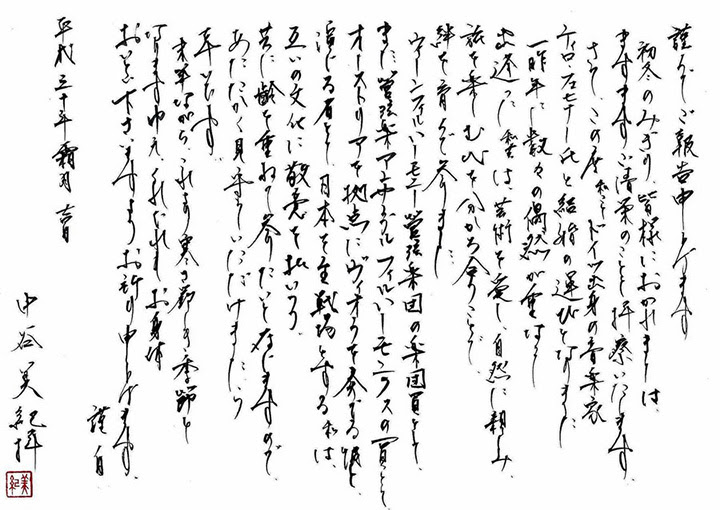 謹んでご報告申し上げます
初冬のみぎり、皆様におかれましては、
ますますご清栄のことと拝察いたします。
さて、この度 私こと ドイツ出身の音楽家
ティロ・フェヒナー氏と結婚の運びとなりました
一昨年に数々の偶然が重なり
出逢った私達は、芸術を愛し、自然に親しみ、
旅を楽しむ心を分かち合うことで
絆を育んで参りました
ウィーンフィルハーモニー管弦楽団の楽団員として、
また管弦楽アンサンブル フィルハーモニクスの一員として
オーストリアを拠点にヴィオラを奏でる彼と
演じる者として日本を主戦場とする私は、
互いの文化に敬意を払いつつ
共に齢を重ねて参りたいと存じますので、
あたたかく見守っていただけましたら
幸いです。
末筆ながら、これより寒さ厳しき季節と
なりますゆえ、くれぐれもお身体
おいとい下さいますようお祈り申し上げます。
謹白
平成三十年霜月吉日
中谷美紀拝
美紀